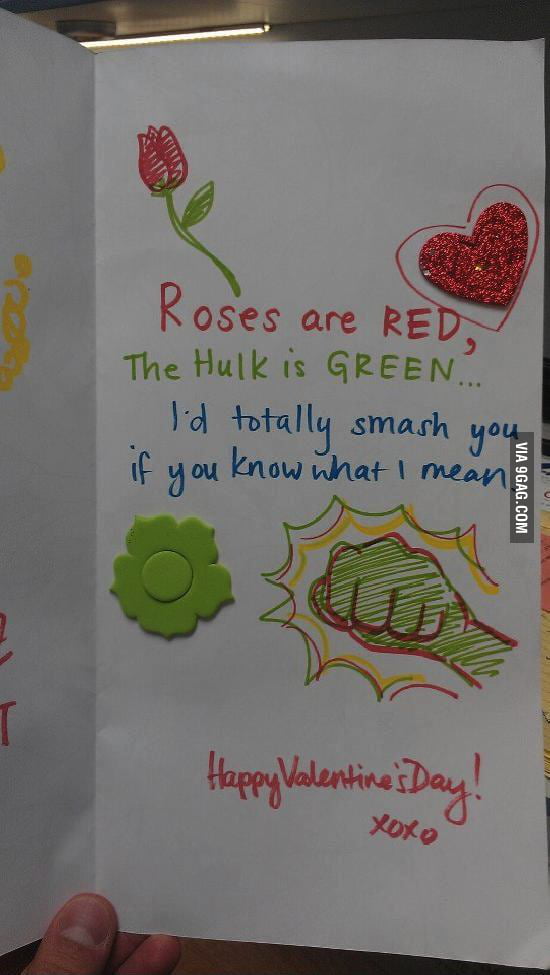 Roses are RED,
The Hulk is GREEN...
I'd totally smash you
if you know what I mean
Happy Valentine's Day!
xoxo
VIA 9GAG.COM